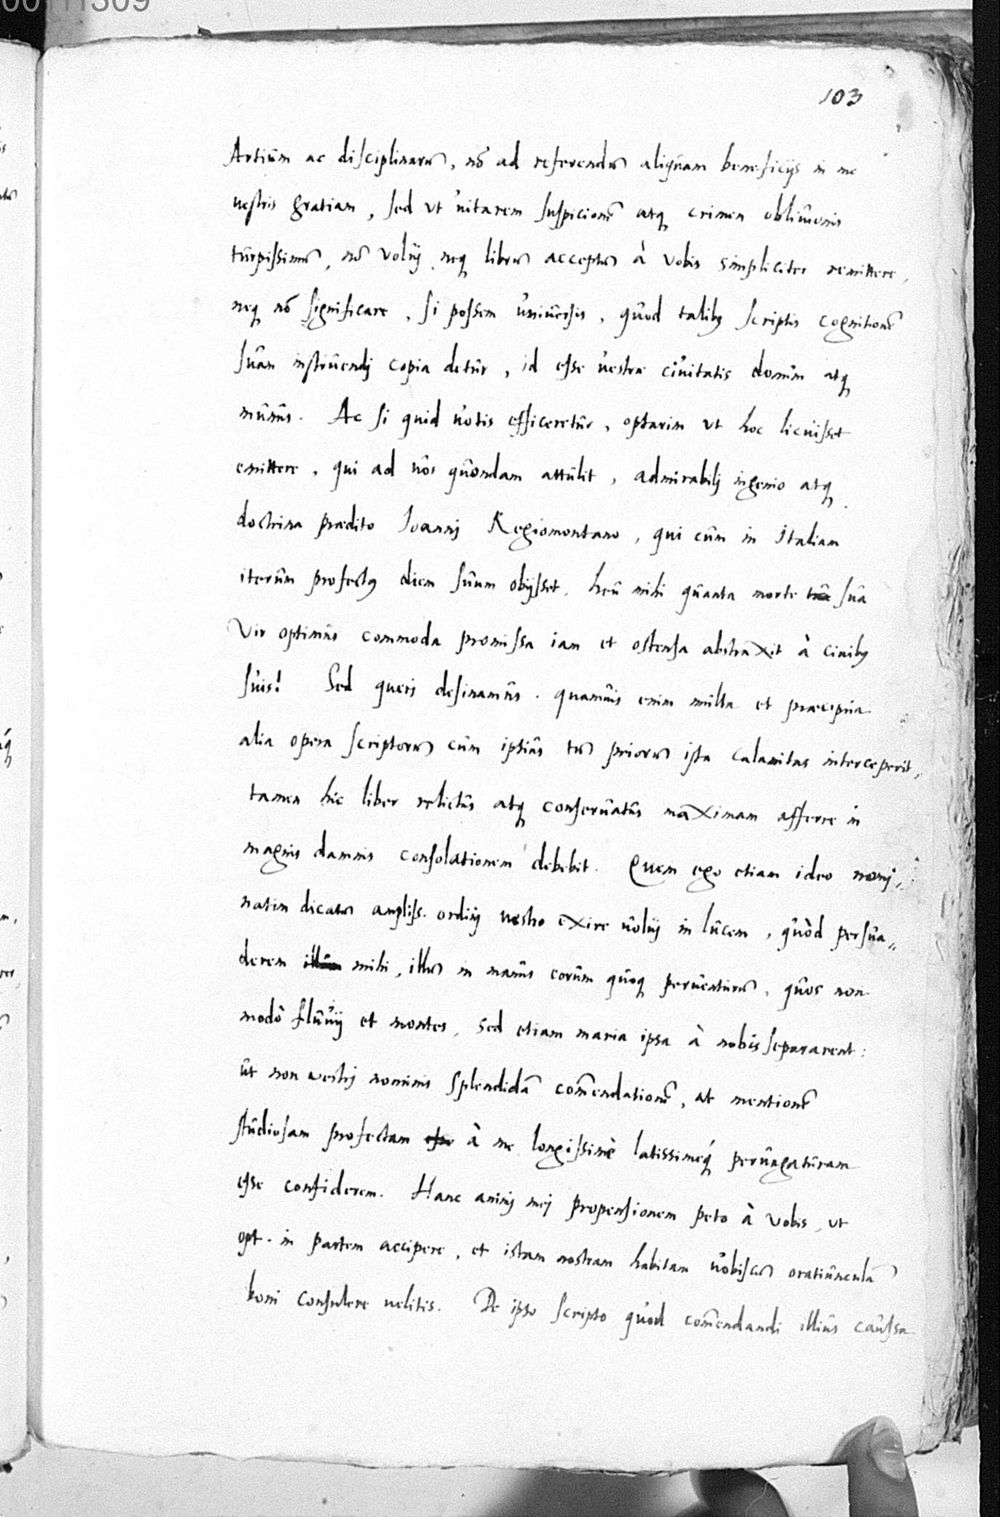 00111309
103
Artiûm ac disciplinarũ, nõ ad referendũ aliquam beneficijs in me
vestris gratiam, sed ut vitarem suspicionẽ atq crimen oblivionis
turpissimũ, nõ volûj neq librũ acceptũ à vobis simpliciter remittere,
neq nõ significare, si possem ûniûersis, quod talibq scriptis cognitionẽ
sûam instrûendj copia detûr, id esse vestrae ciûitatis donûm atq
mûnûs. Ac si quid votis efficeretûr, optarim ut hoc licuisset
emittere, qui ad vos quondam attûlit, admirabilj ingenio atq
doctrina praedito Joannj Regiomontano, qui cûm in Italiam
iterûm profectq diem sûum obijsset, heû mihi quanta morte sûa
Vir optimûs commoda promissa iam et ostensa abstraxit à civibq
sûis! Sed queri desinamûs. quamûis enim mûlta et praecipûa
alia opera scriptorũ cûm ipsiûs tũ priorũ ista calamitas interceperit,
tamen hic liber relictûs atq conservatûs maximam afferre in
magnis damnis consolationem debebit. Quem ego etiam ideo nomj,,
natim dicatũ ampliss. ordinj vestro exire volûj in lûcem, quòd persûa,,
derem illûm mihi, illũ in manûs eorûm quoq perventûrũ, quos non
modò flûvij et montes, sed etiam maria ipsa à nobis separarent:
ût non vestrj nominis splendidã com̃endationẽ, at mentionẽ
stûdiosam profectam esse à me longissimè latissimeq́ pervagatûram
esse confiderem. Hanc animj mej propensionem peto à vobis, ut
opt. in partem accipere, et istam nostram habitam vobiscũ oratiûnculã
boni consulere velitis. De ipso scripto quod com̃endandi illiûs caûssa